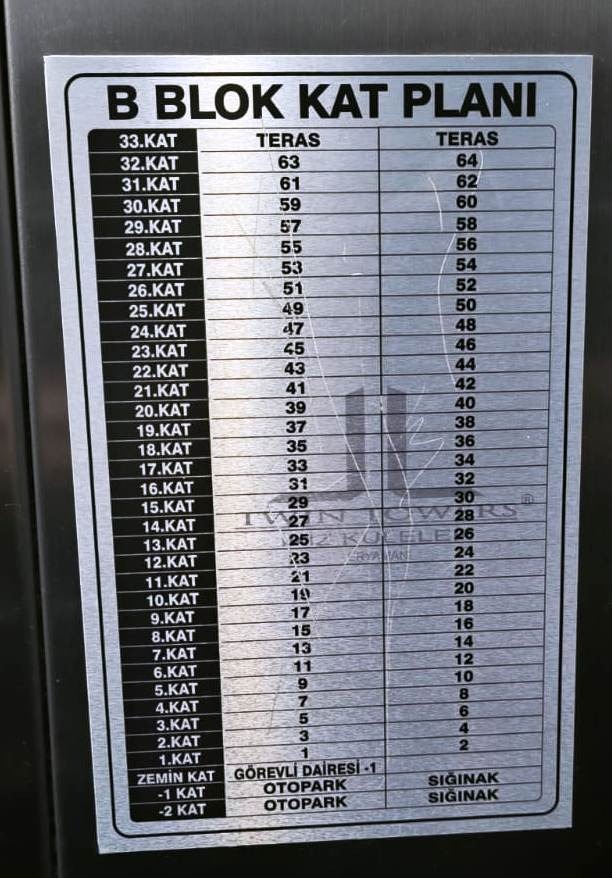 B BLOK KAT PLANI
33.KAT TERAS TERAS
32.KAT 63 64
31.KAT 61 62
30.KAT 59 60
29.KAT 57 58
28.KAT 55 56
27.KAT 53 54
26.KAT 51 52
25.KAT 49 50
24.KAT 47 48
23.KAT 45 46
22.KAT 43 44
21.KAT 41 42
20.KAT 39 40
19.KAT 37 38
18.KAT 35 36
17.KAT 33 34
16.KAT 31 32
15.KAT 29 30
14.KAT 27 28
13.KAT 25 26
12.KAT 23 24
11.KAT 21 22
10.KAT 19 20
9.KAT 17 18
8.KAT 15 16
7.KAT 13 14
6.KAT 11 12
5.KAT 9 10
4.KAT 7 8
3.KAT 5 6
2.KAT 3 4
1.KAT 1 2
ZEMİN KAT GÖREVLİ DAİRESİ -1
-1 KAT OTOPARK SIĞINAK
-2 KAT OTOPARK SIĞINAK
TWIN TOWERS®